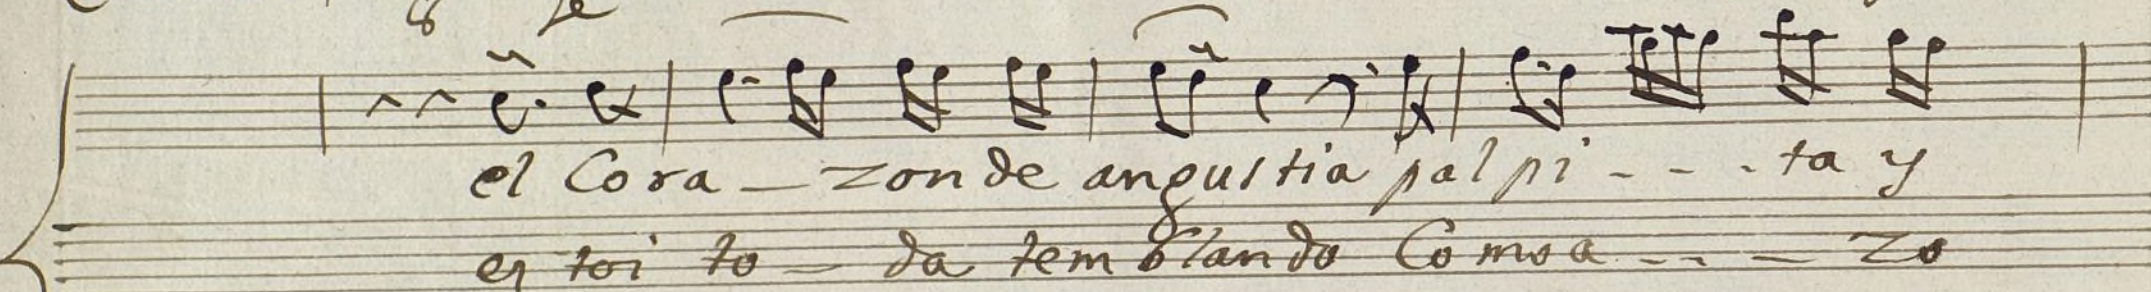 el Cora - zon de angustia palpi - - - ta y
estoi to - da temblando Como a - - - zo